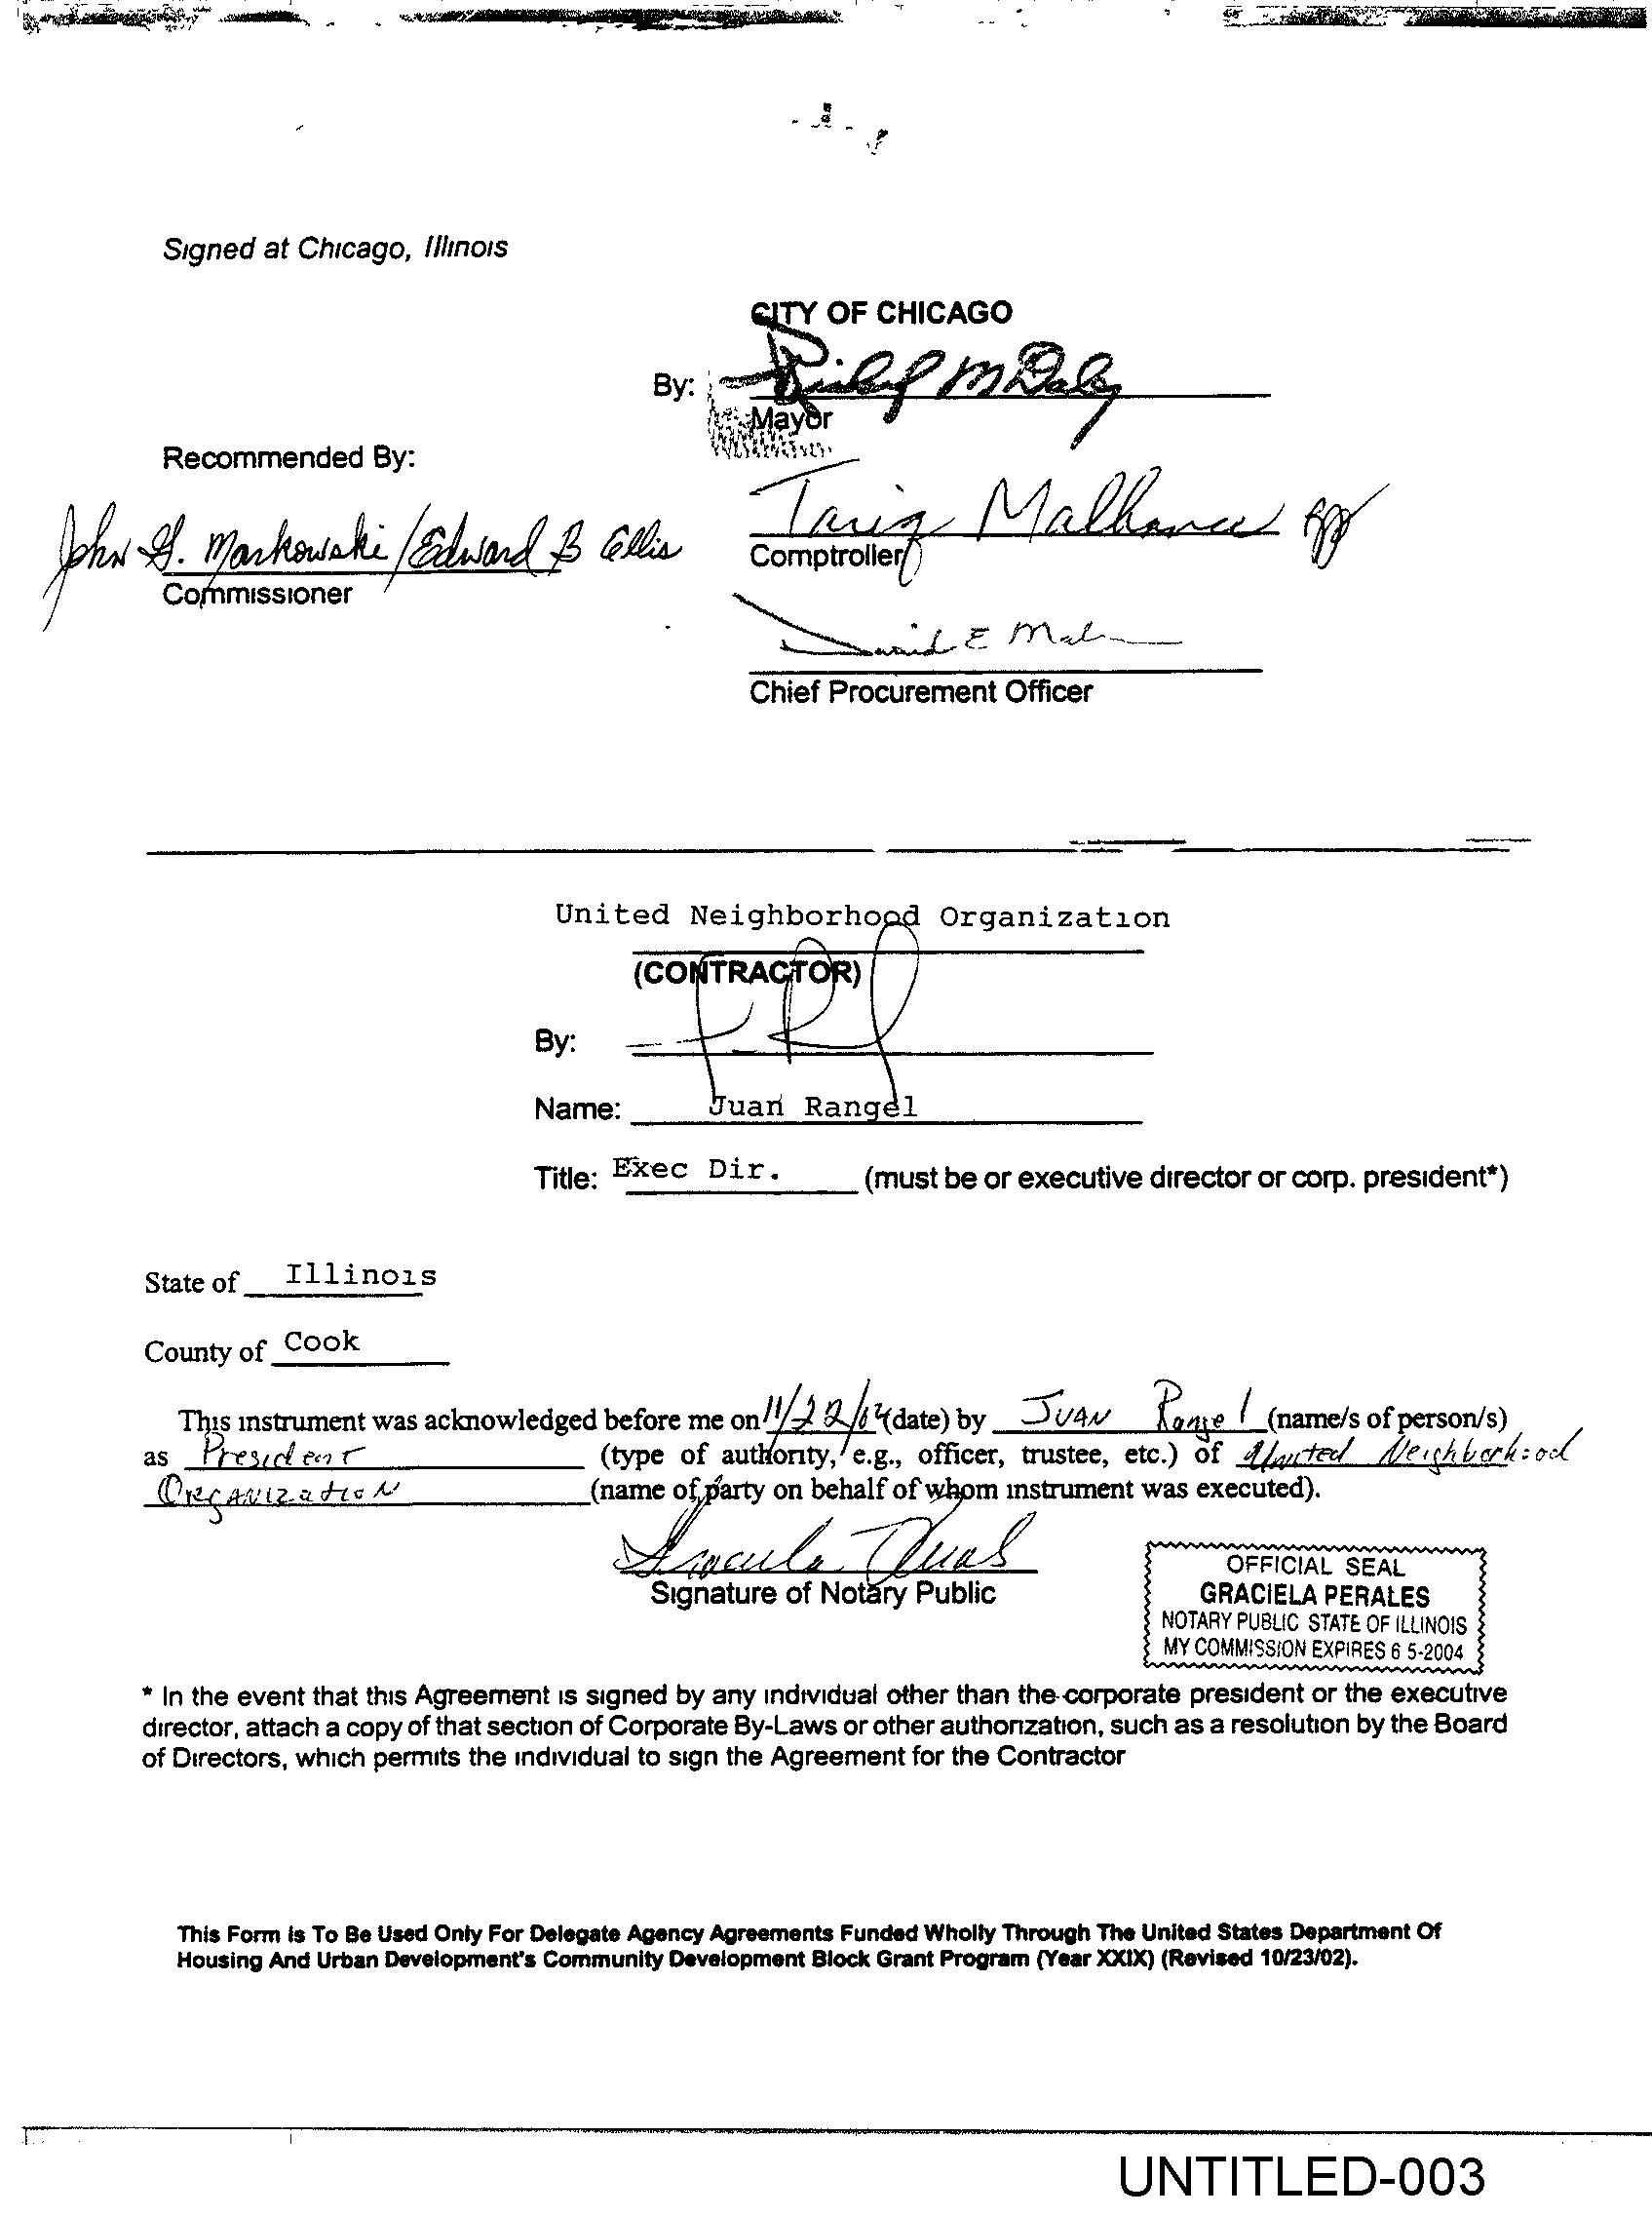 Signed at Chicago, Illinois
CITY OF CHICAGO
By: Richard M Daley
Mayor
Recommended By:
John G. Markowski / Edward B Ellis
Commissioner
Tariq Malhance
Comptroller
David E Mal
Chief Procurement Officer
United Neighborhood Organization
(CONTRACTOR)
By:
Name: Juan Rangel
Title: Exec Dir. (must be or executive director or corp. president*)
State of Illinois
County of Cook
This instrument was acknowledged before me on 11/22/04 (date) by JUAN Rangel (name/s of person/s)
as President (type of authority, e.g., officer, trustee, etc.) of United Neighborhood
Organization (name of party on behalf of whom instrument was executed).
Signature of Notary Public
OFFICIAL SEAL
GRACIELA PERALES
NOTARY PUBLIC STATE OF ILLINOIS
MY COMMISSION EXPIRES 6 5-2004
* In the event that this Agreement is signed by any individual other than the corporate president or the executive
director, attach a copy of that section of Corporate By-Laws or other authorization, such as a resolution by the Board
of Directors, which permits the individual to sign the Agreement for the Contractor
This Form Is To Be Used Only For Delegate Agency Agreements Funded Wholly Through The United States Department Of
Housing And Urban Development's Community Development Block Grant Program (Year XXIX) (Revised 10/23/02).
UNTITLED-003